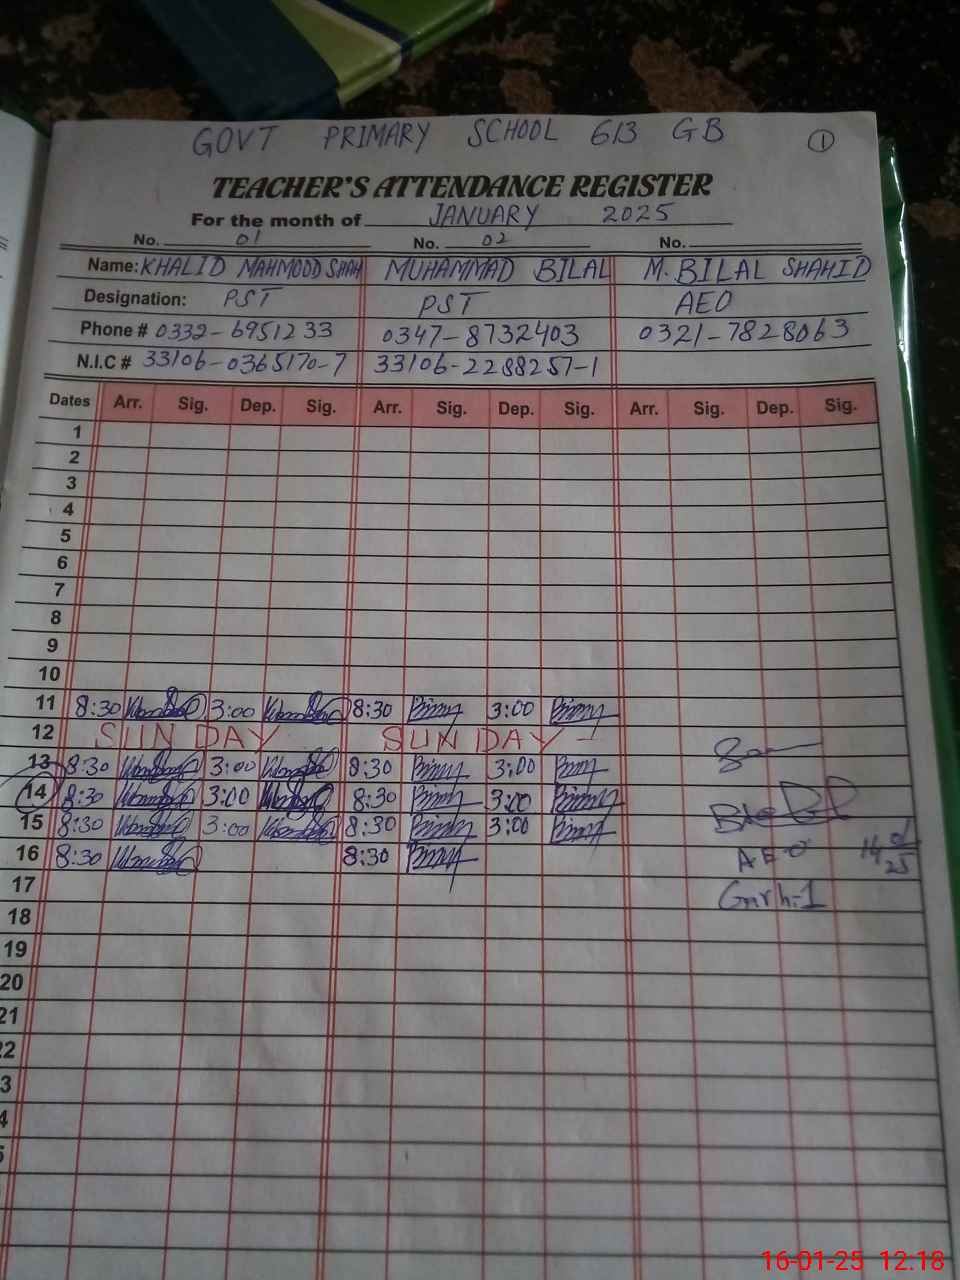 GOVT PRIMARY SCHOOL 613 GB ①
TEACHER'S ATTENDANCE REGISTER
For the month of JANUARY 2025
No. 01 No. 02 No.
Name: KHALID MAHMOOD SHAH MUHAMMAD BILAL M. BILAL SHAHID
Designation: PST PST AEO
Phone # 0332-6951233 0347-8732403 0321-7828063
N.I.C # 33106-0365170-7 33106-2288257-1
Dates Arr. Sig. Dep. Sig. Arr. Sig. Dep. Sig. Arr. Sig. Dep. Sig.
1
2
3
4
5
6
7
8
9
10
11 8:30 3:00 8:30 3:00
12 SUNDAY SUNDAY
13 8:30 3:00 8:30 3:00
14 8:30 3:00 8:30 3:00
15 8:30 3:00 8:30 3:00
16 8:30 8:30 AEO
17
18
19
20
21
22
3
4
5
16-01-25 12.18